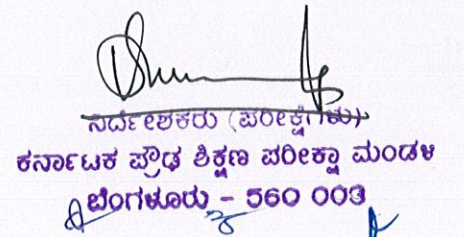 ನಿರ್ದೇಶಕರು (ಪರೀಕ್ಷೆಗಳು)
ಕರ್ನಾಟಕ ಪ್ರೌಢ ಶಿಕ್ಷಣ ಪರೀಕ್ಷಾ ಮಂಡಳಿ
ಬೆಂಗಳೂರು - 560 003